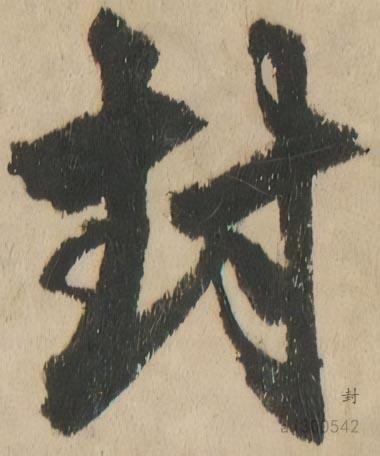 封
封
a1300542